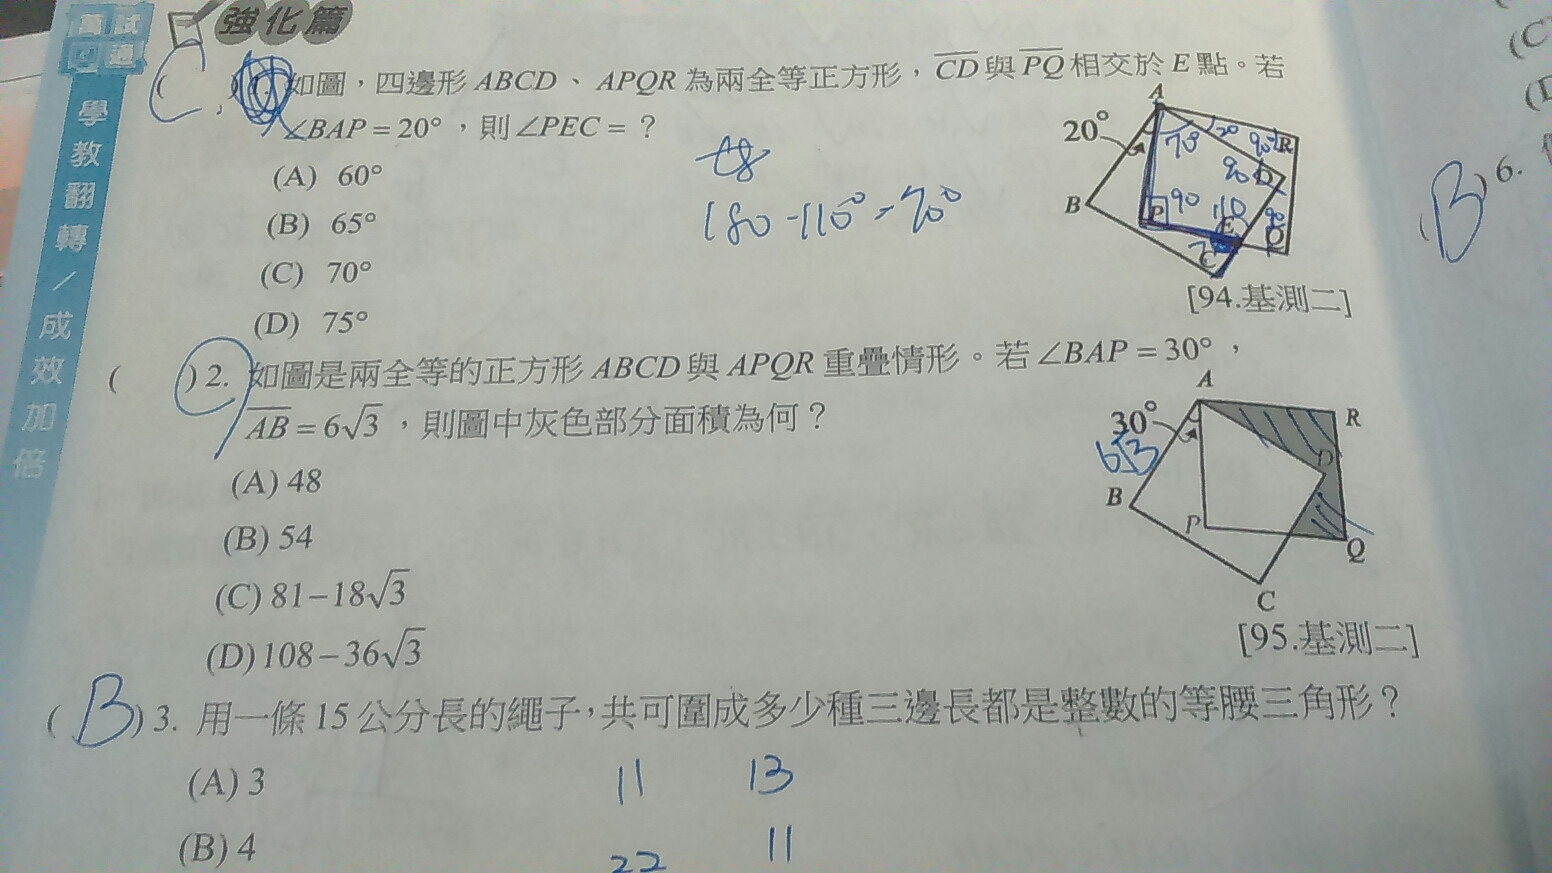 萬試通
強化篇
學教翻轉／成效加倍
C
如圖，四邊形 ABCD、APQR 為兩全等正方形，CD與PQ相交於 E 點。若
∠BAP = 20°，則∠PEC = ？
(A) 60°
(B) 65°
(C) 70°
(D) 75°
180 - 110° = 70°
A
20°
70°
20
90
R
90
D
B
P
90
110
90
E
Q
C
[94.基測二]
( ) 2. 如圖是兩全等的正方形 ABCD 與 APQR 重疊情形。若∠BAP = 30°，
AB = 6√3，則圖中灰色部分面積為何？
(A) 48
(B) 54
(C) 81－18√3
(D) 108－36√3
A
30°
R
6√3
D
B
P
Q
C
[95.基測二]
( B ) 3. 用一條 15 公分長的繩子，共可圍成多少種三邊長都是整數的等腰三角形？
(A) 3
11 13
(B) 4
22 11
(C
B ) 6.